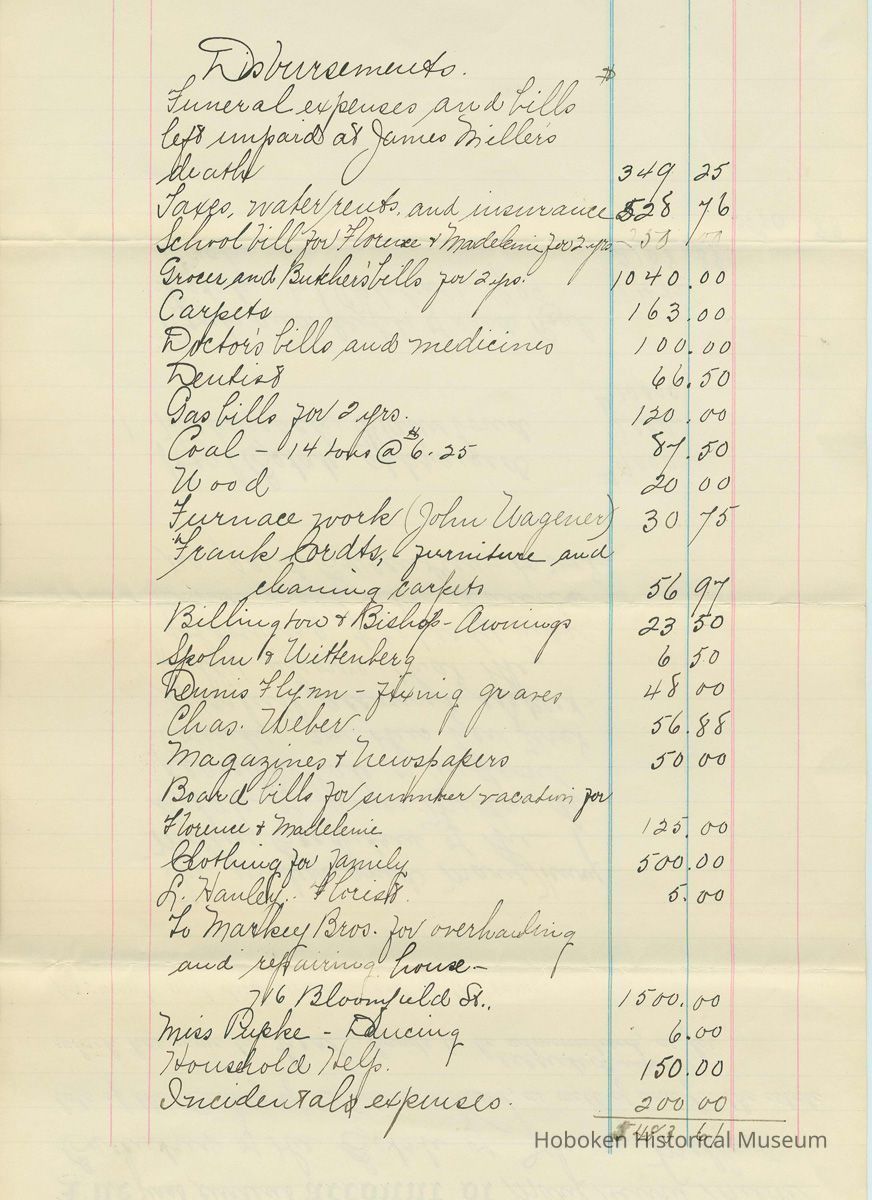 Disbursements.
$
Funeral expenses and bills
left unpaid at James Millers
death 349 25
Taxes, water rents, and insurance 528 76
School bill for Florence & Madeleine for 2 yrs. 250 00
Grocer and Butcher's bills for 2 yrs. 1040.00
Carpets 163.00
Doctor's bills and medicines 100.00
Dentist 66.50
Gas bills for 2 yrs. 120.00
Coal - 14 tons @ $6.25 87.50
Wood 20 00
Furnace work (John Wagener) 30 75
Frank Cordts, - furniture and
cleaning carpets 56 97
Billington & Bishop - Awnings 23 50
Spohn & Wittenberg 6 50
Dennis Flynn - fixing graves 48 00
Chas. Weber 56.88
Magazines & Newspapers 50 00
Board bills for summer vacation for
Florence & Madeleine 125.00
Clothing for family 500.00
L. Hanley. Florist. 5.00
To Markey Bros. for overhauling
and repairing house -
76 Bloomfield St., 1500.00
Miss Pupke - Dancing 6.00
Household Help. 150.00
Incidentals expenses. 200 00
61
Hoboken Historical Museum